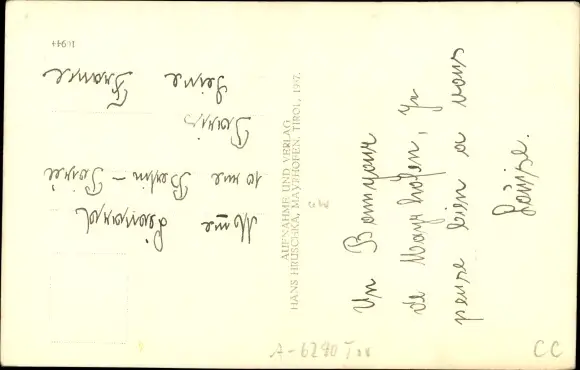 Un Bonnjour
de Mayrhofen, je
pense bien a vous
Louise.
AUFNAHME UND VERLAG
HANS HRUSCHKA, MAYRHOFEN, TIROL, 1937.
Mme
Léonard
10 rue Bertin-Poirée
Paris
Seine
France
A-6290
CC